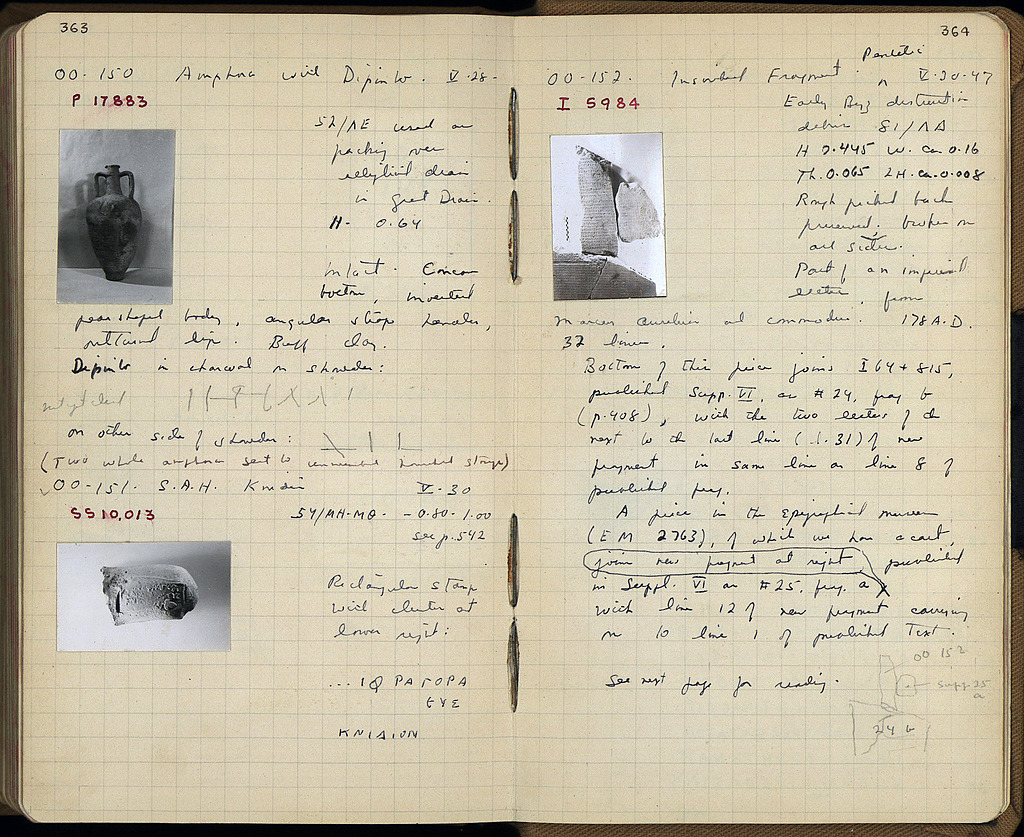 363
OO-150 Amphora with Dipinto. V-28-
P 17883
52/ΛΕ used as
packing over
elliptical drain
in Great Drain.
H- 0.64
Intact. Concave
bottom, inverted
pear shaped body, angular strap handles,
outturned lip. Buff clay.
Dipinto in charcoal on shoulder:
on other side of shoulder:
(Two whole amphoras sent to uninventoried storage)
OO-151. S.A.H. Knidian V-30
SS 10,013
54/ΜΗ-ΜΘ- -0.80-1.00
see p. 542
Rectangular stamp
with cluster at
lower right:
ΡΑΓΟΡΑ
ΕΥΕ
ΚΝΙΔΙΟΝ
364
Pentelic
OO-152. Inscribed Fragment. ^ V-30-47
I 5984
Early Byz destruction
debris 81/ΛΔ
H 0.445 W. ca 0.16
Th. 0.065 LH. ca. 0.008
Rough picked back
preserved; broken on
all sides.
Part of an imperial
letter, from
Marcus Aurelius and Commodus. 178 A.D.
32 lines.
Bottom of this piece joins I 64 + 815,
published Supp. VI, as #24, frag b
(p. 408), with the two letters of the
next to the last line (l. 31) of new
fragment in same line as line 8 of
published frag.
A piece in the Epigraphical Museum
(EM 2763), of which we have a cast,
joins new fragment at right published
in Suppl. VI as #25, frag. a
with line 12 of new fragment carrying
on to line 1 of published Text.
See next page for reading.
OO 152
supp. 25
a
24 b